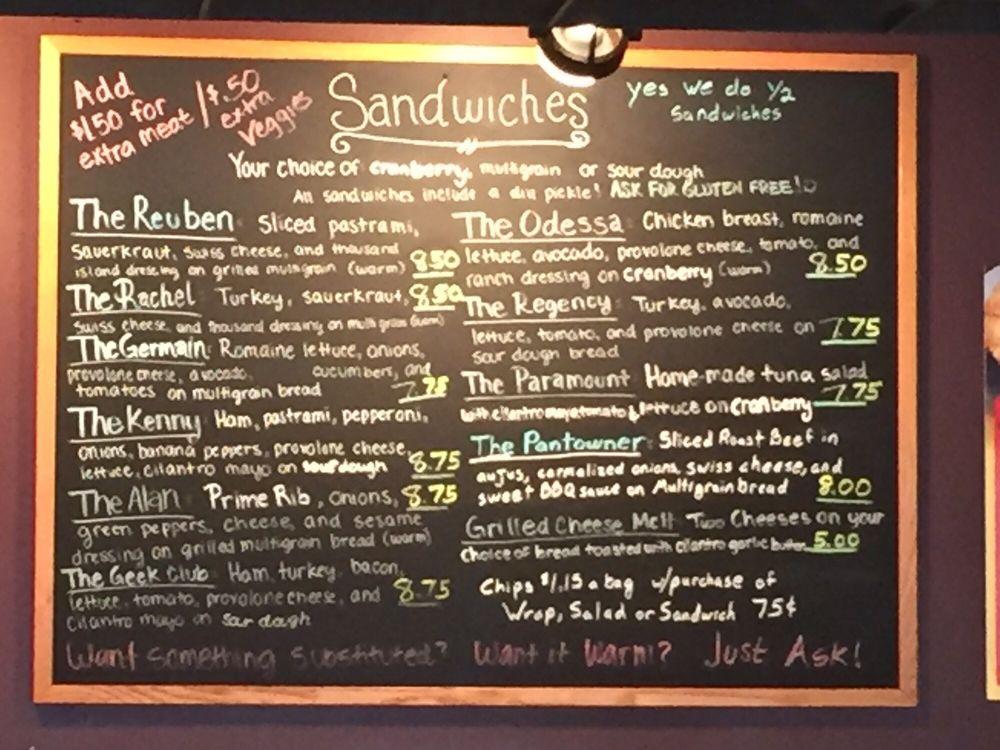 Add
$1.50 for
extra meat
$.50
extra
veggies
Sandwiches
yes we do 1/2
Sandwiches
Your choice of cranberry, multigrain or sour dough
All sandwiches include a dill pickle! ASK FOR GLUTEN FREE!
The Reuben: Sliced pastrami,
Sauerkraut, swiss cheese, and thousand
island dressing on grilled multigrain (warm) 8.50
The Rachel Turkey, sauerkraut, 8.50
swiss cheese, and thousand dressing on multi grain (warm)
The Germain: Romaine lettuce, onions,
provolone cheese, avocado, cucumbers, and
tomatoes on multigrain bread 7.75
The Kenny Ham, pastrami, pepperoni,
onions, banana peppers, provolone cheese,
lettuce, cilantro mayo on sourdough 8.75
The Alan Prime Rib, onions, 8.75
green peppers, cheese, and sesame
dressing on grilled multigrain bread (warm)
The Geek Club: Ham, turkey, bacon,
lettuce, tomato, provolone cheese, and 8.75
cilantro mayo on sour dough
The Odessa: Chicken breast, romaine
lettuce, avocado, provolone cheese, tomato, and
ranch dressing on cranberry (warm) 8.50
The Regency: Turkey, avocado,
lettuce, tomato, and provolone cheese on 7.75
sour dough bread
The Paramount Home-made tuna salad
with cilantro mayo, tomato & lettuce on cranberry 7.75
The Pantowner: Sliced Roast Beef in
aujus, carmalized onions, swiss cheese, and
sweet BBQ sauce on Multigrain bread 8.00
Grilled Cheese Melt Two Cheeses on your
choice of bread toasted with cilantro garlic butter 5.00
Chips $1.15 a bag w/purchase of
Wrap, Salad or Sandwich 75¢
Want something substituted? Want it Warm? Just Ask!